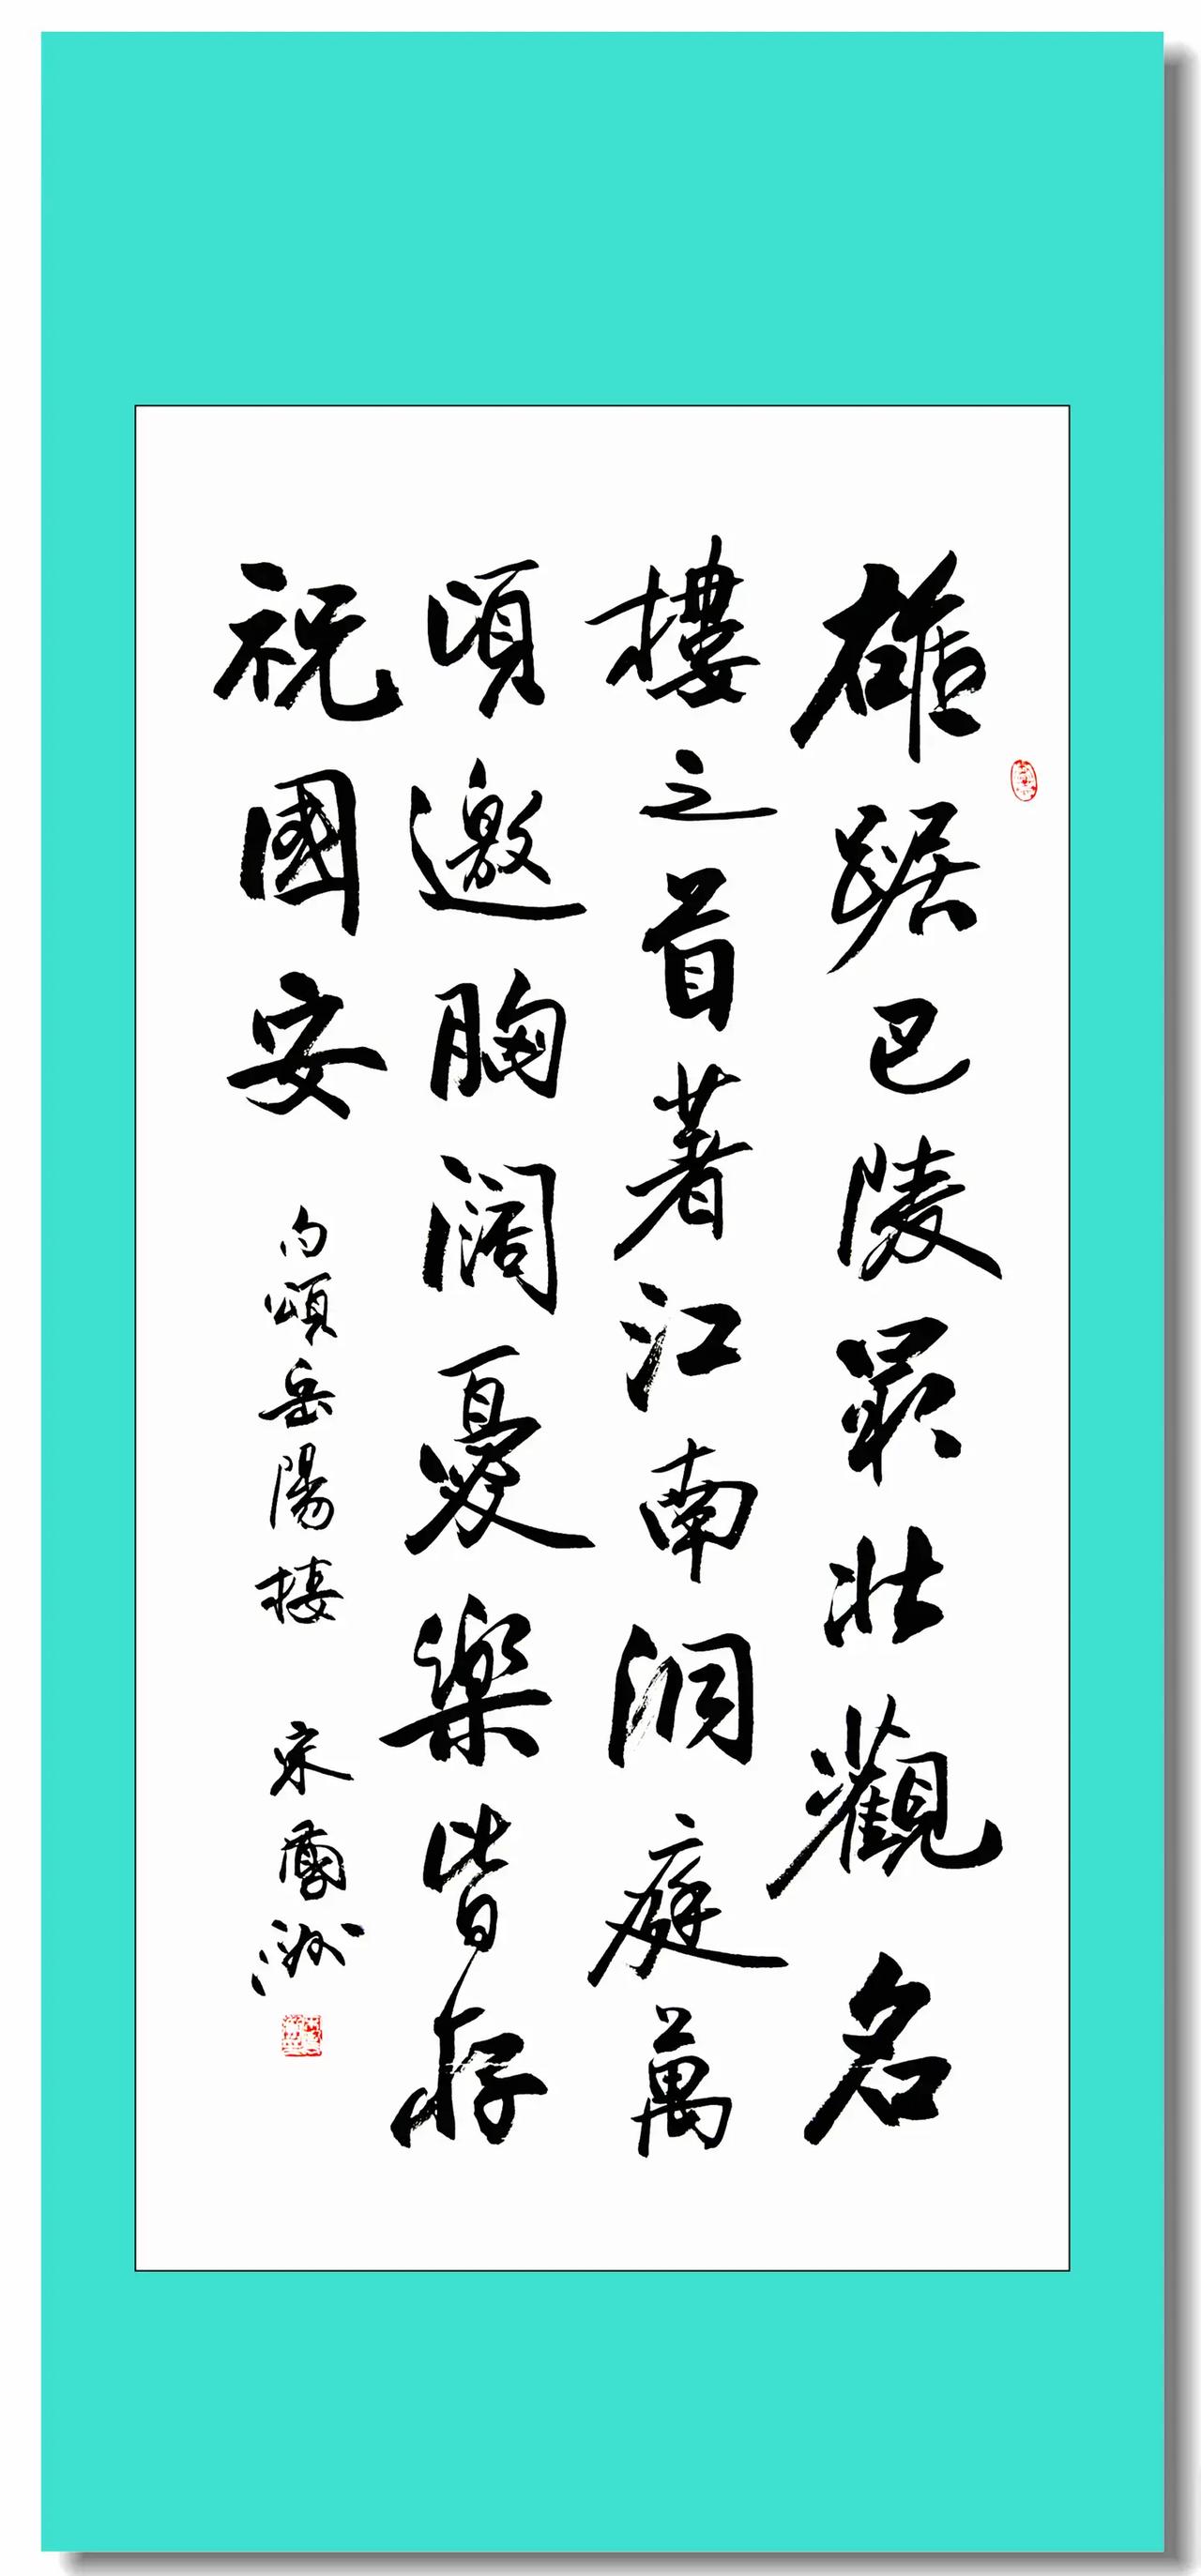 雄踞巴陵最壯觀名
樓之首著江南洞庭萬
頃邀胸闊憂樂皆存
祝國安
句頌岳陽樓 宋雲洲